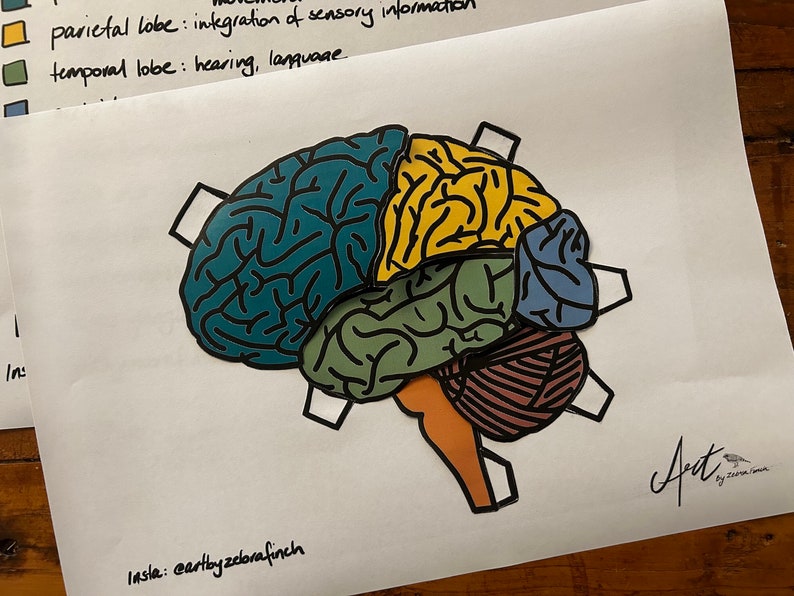 movement
parietal lobe: integration of sensory information
temporal lobe: hearing, language
Ins
Art
By Zebra Finch
Insta: @artbyzebrafinch